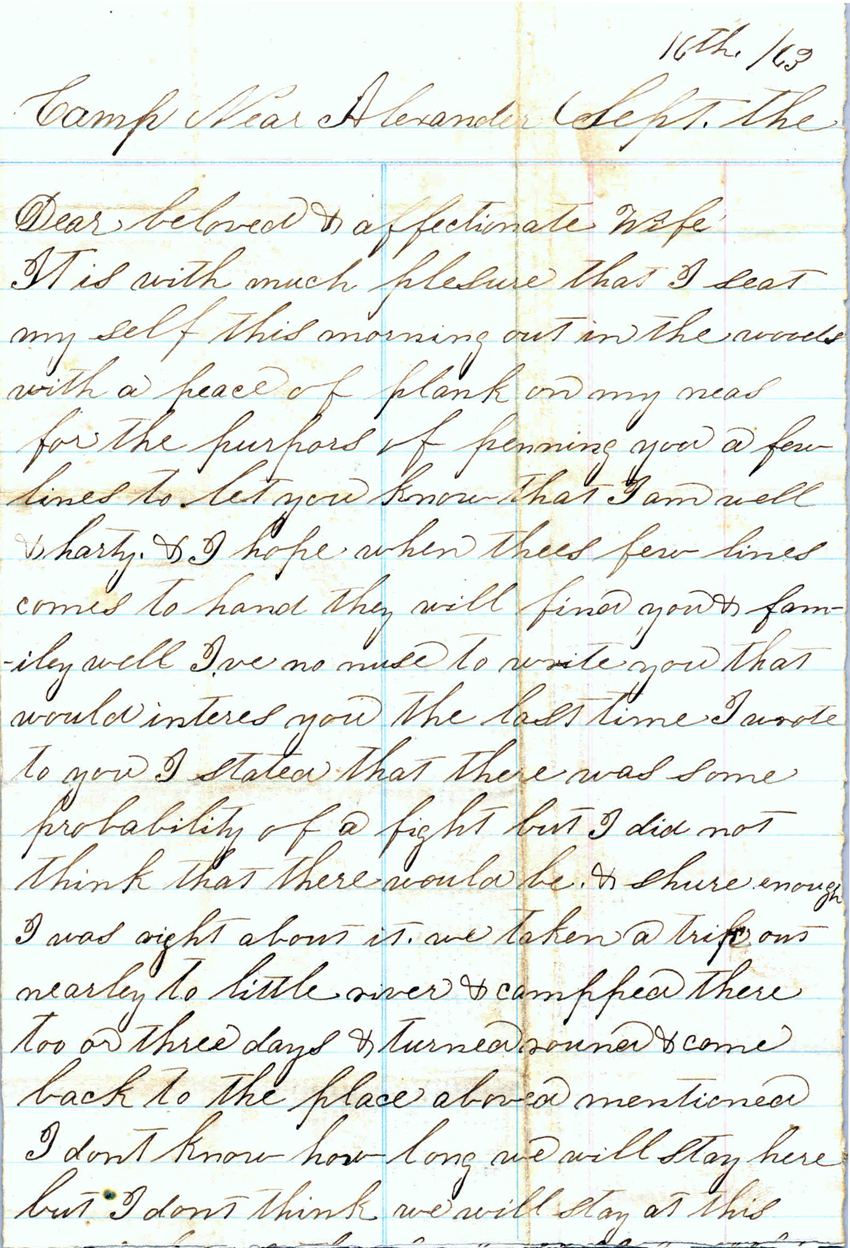 16th. /63
Camp Near Alexander Sept. the
Dear beloved & affectionate Wife
It is with much plesure that I seat
my self this morning out in the woods
with a peace of plank on my neas
for the purpors of penning you a few
lines to let you know that I am well
& harty. & I hope when thees few lines
comes to hand they will find you & fam-
-iley well I.ve no nuse to write you that
would interes you the last time I wrote
to you I stated that there was some
probability of a fight but I did not
think that there would be. & shure enough
I was right about it. we taken a trip out
nearley to little river & campped there
too or three days & turned round & come
back to the place aboved mentioned
I dont know how long we will stay here
but I dont think we will stay at this